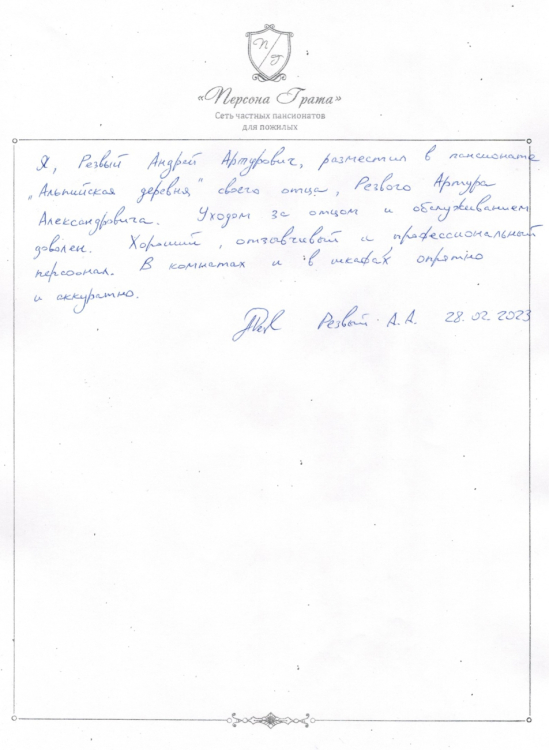 П Г
«Персона Грата»
Сеть частных пансионатов
для пожилых
Я, Резвый Андрей Артурович, разместил в пансионате
„Альпийская деревня" своего отца, Резвого Артура
Александровича. Уходом за отцом и обслуживанием
доволен. Хороший, отзывчивый и профессиональный
персонал. В комнатах и в шкафах опрятно
и аккуратно.
Резвый А.А. 28.02.2023